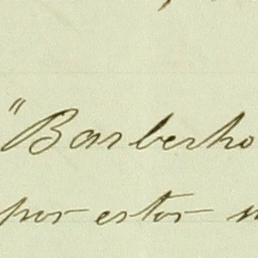 "Barberho
por estor